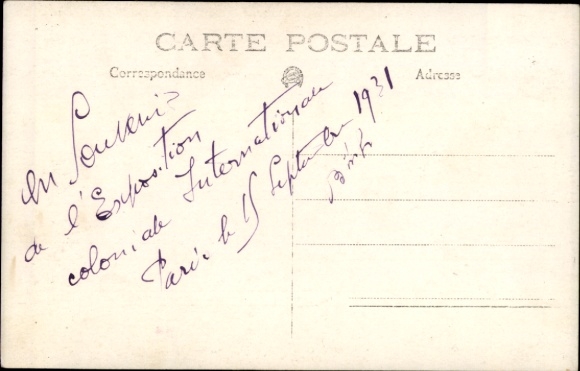 CARTE POSTALE
Correspondance
Adresse
En Souvenir
de l'Exposition
coloniale Internationale
Paris le 15 Septembre 1931